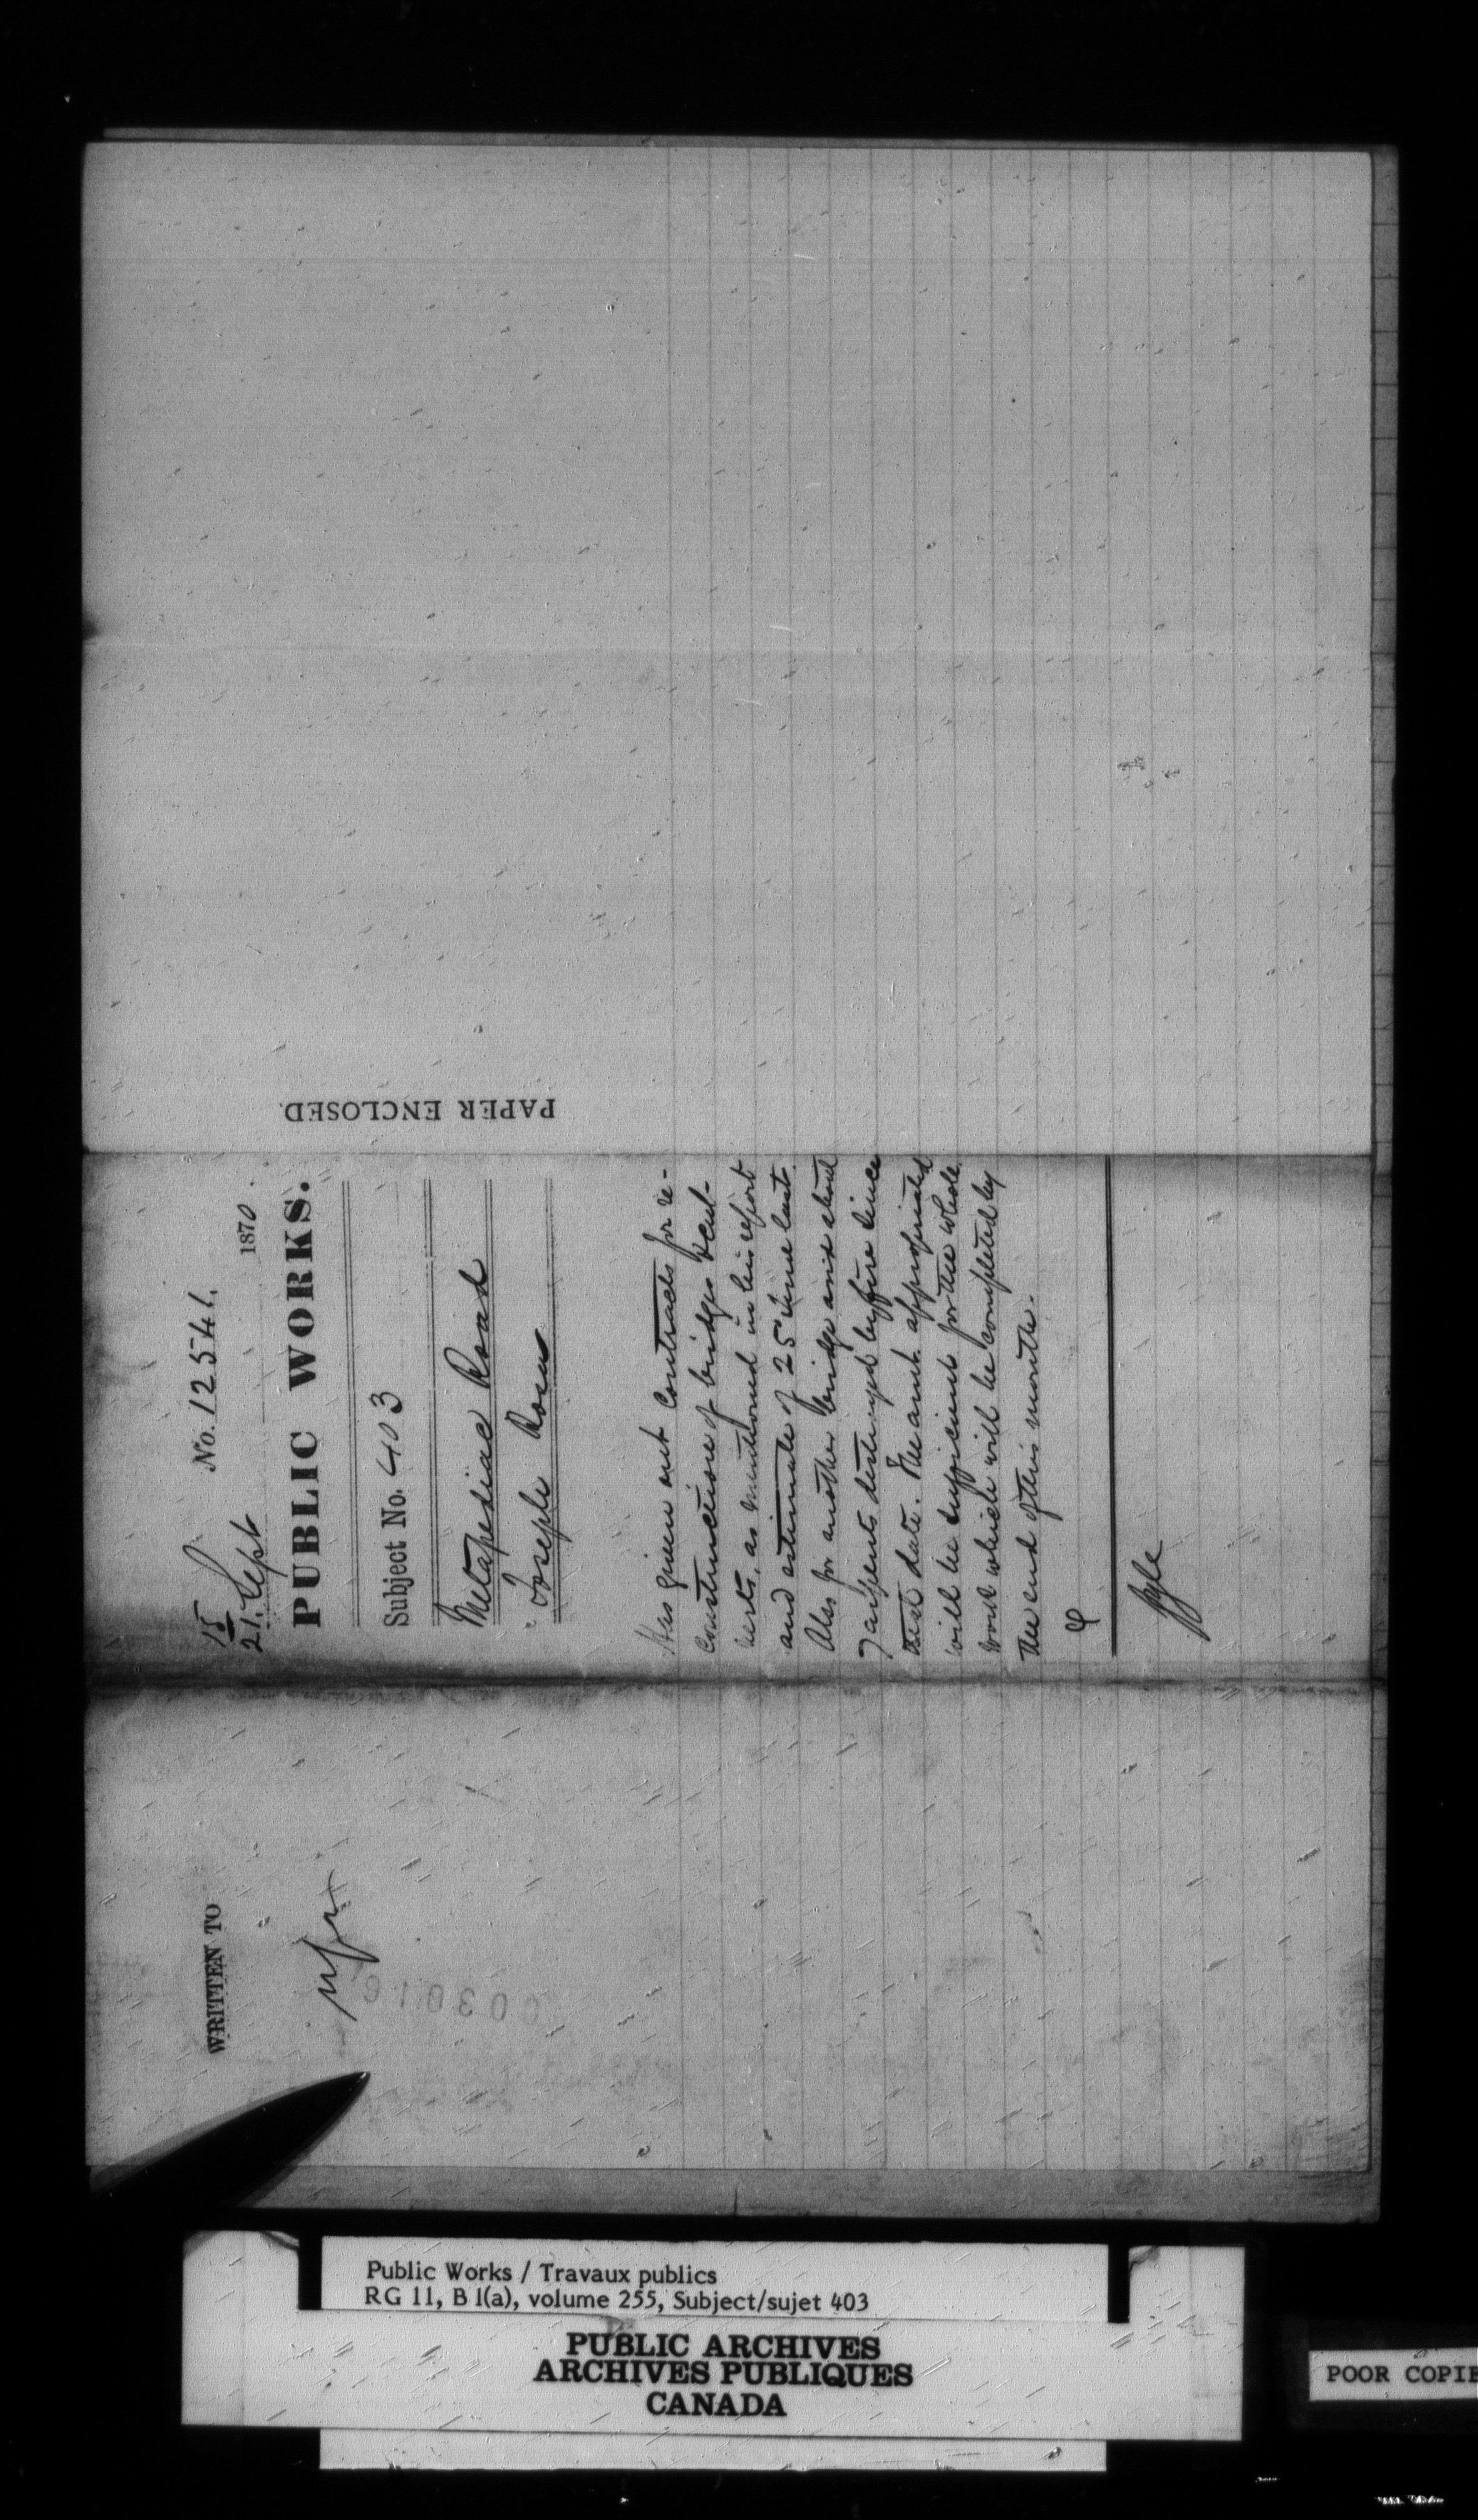 No. 12541.
15
21. Sept 1870.
PUBLIC WORKS.
Subject No. 403
Metapediac Road
Joseph Rosa
Has given out contracts for re-
construction of bridges & cul-
verts, as mentioned in his report
and estimate of 25 June last.
Also for another bridge and about
7 arpents destroyed by fire since
that date. The amt. appropriated
will be sufficient for the whole
work which will be completed by
the end of this month.
PAPER ENCLOSED.
WRITTEN TO
003016
Public Works / Travaux publics
RG 11, B 1(a), volume 255, Subject/sujet 403
PUBLIC ARCHIVES
ARCHIVES PUBLIQUES
CANADA
POOR COPIE